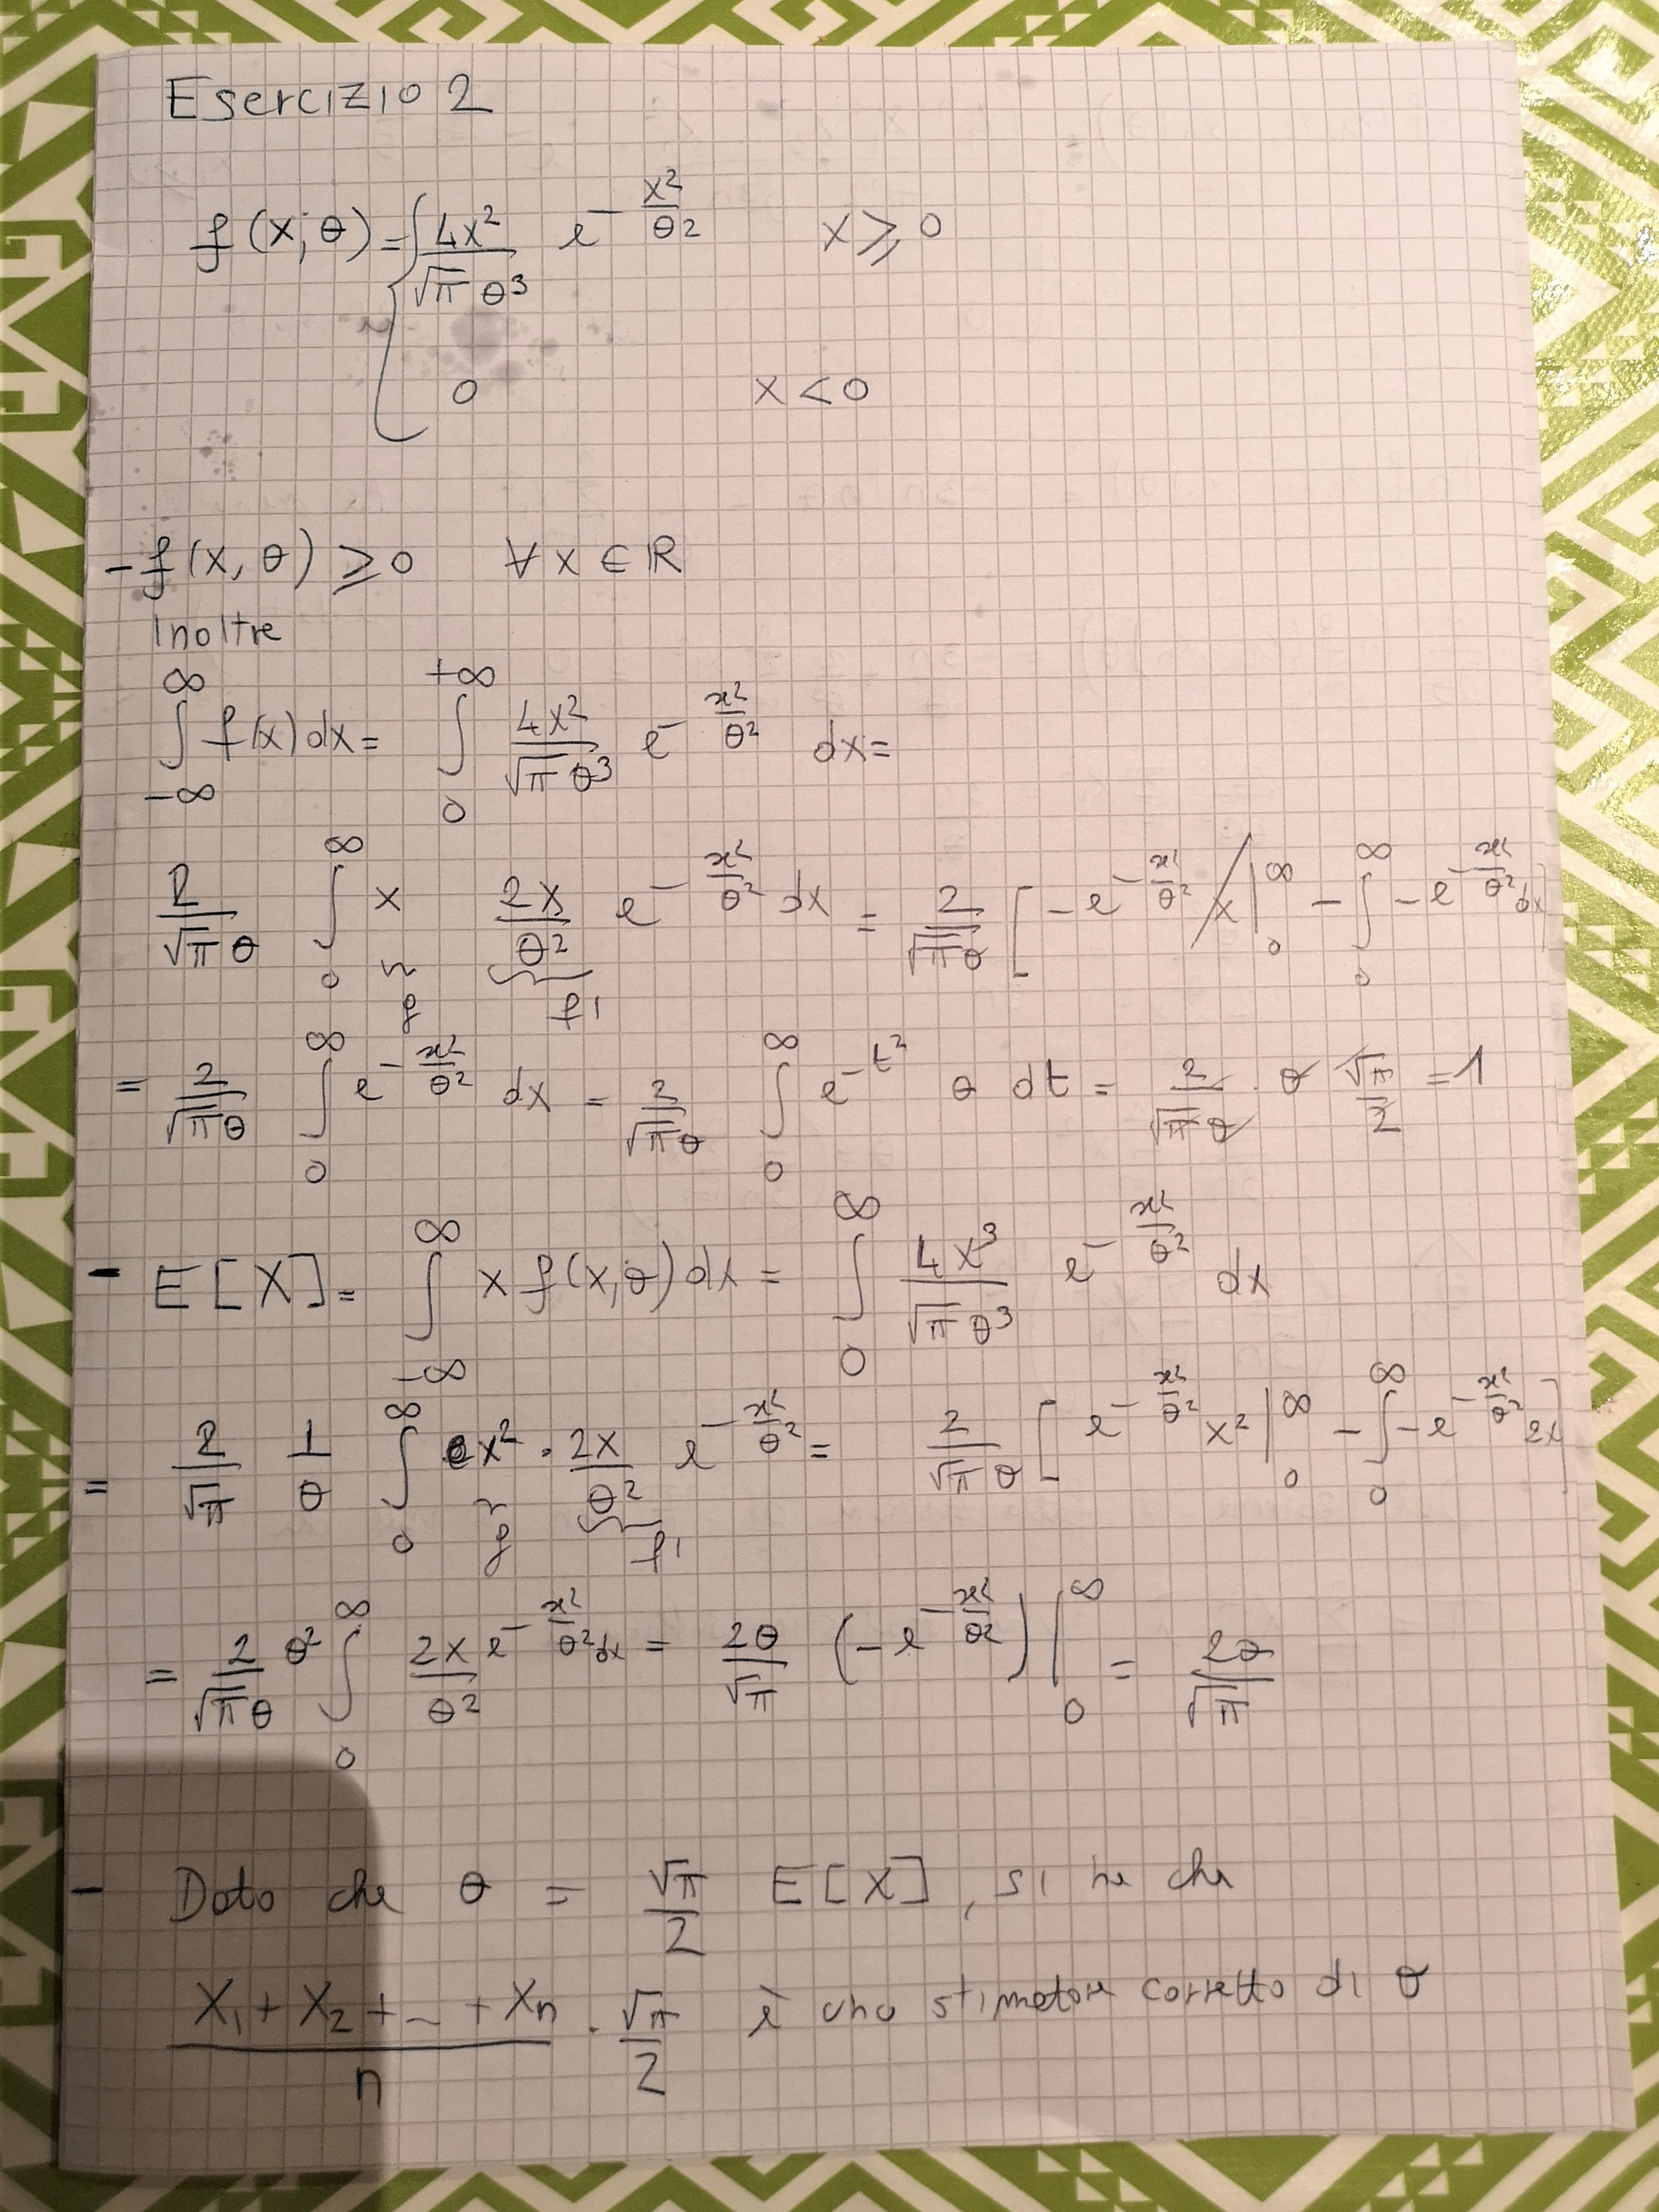 Esercizio 2
f(x;θ) = { 4x²/(√π θ³) e^(-x²/θ²) x ⩾ 0
0 x < 0
- f(x,θ) ⩾ 0 ∀ x ∈ ℝ
Inoltre
∫_{-∞}^{∞} f(x)dx = ∫_0^{+∞} 4x²/(√π θ³) e^(-x²/θ²) dx =
2/(√π θ) ∫_0^∞ x (g) 2x/θ² (f') e^(-x²/θ²) dx = 2/(√π θ) [ -e^(-x²/θ²) x |_0^∞ - ∫_0^∞ -e^(-x²/θ²) dx ]
= 2/(√π θ) ∫_0^∞ e^(-x²/θ²) dx = 2/(√π θ) ∫_0^∞ e^(-t²) θ dt = 2/(√π θ) · θ √π/2 = 1
- E[X] = ∫_{-∞}^{∞} x f(x,θ) dx = ∫_0^∞ 4x³/(√π θ³) e^(-x²/θ²) dx
= 2/√π 1/θ ∫_0^∞ x² (g) · 2x/θ² (f') e^(-x²/θ²) = 2/(√π θ) [ e^(-x²/θ²) x² |_0^∞ - ∫_0^∞ -e^(-x²/θ²) 2x ]
= 2/(√π θ) θ² ∫_0^∞ 2x/θ² e^(-x²/θ²) dx = 2θ/√π (-e^(-x²/θ²)) |_0^∞ = 2θ/√π
- Dato che θ = √π/2 E[X], si ha che
(X₁ + X₂ + … + Xn)/n · √π/2 è uno stimatore corretto di θ